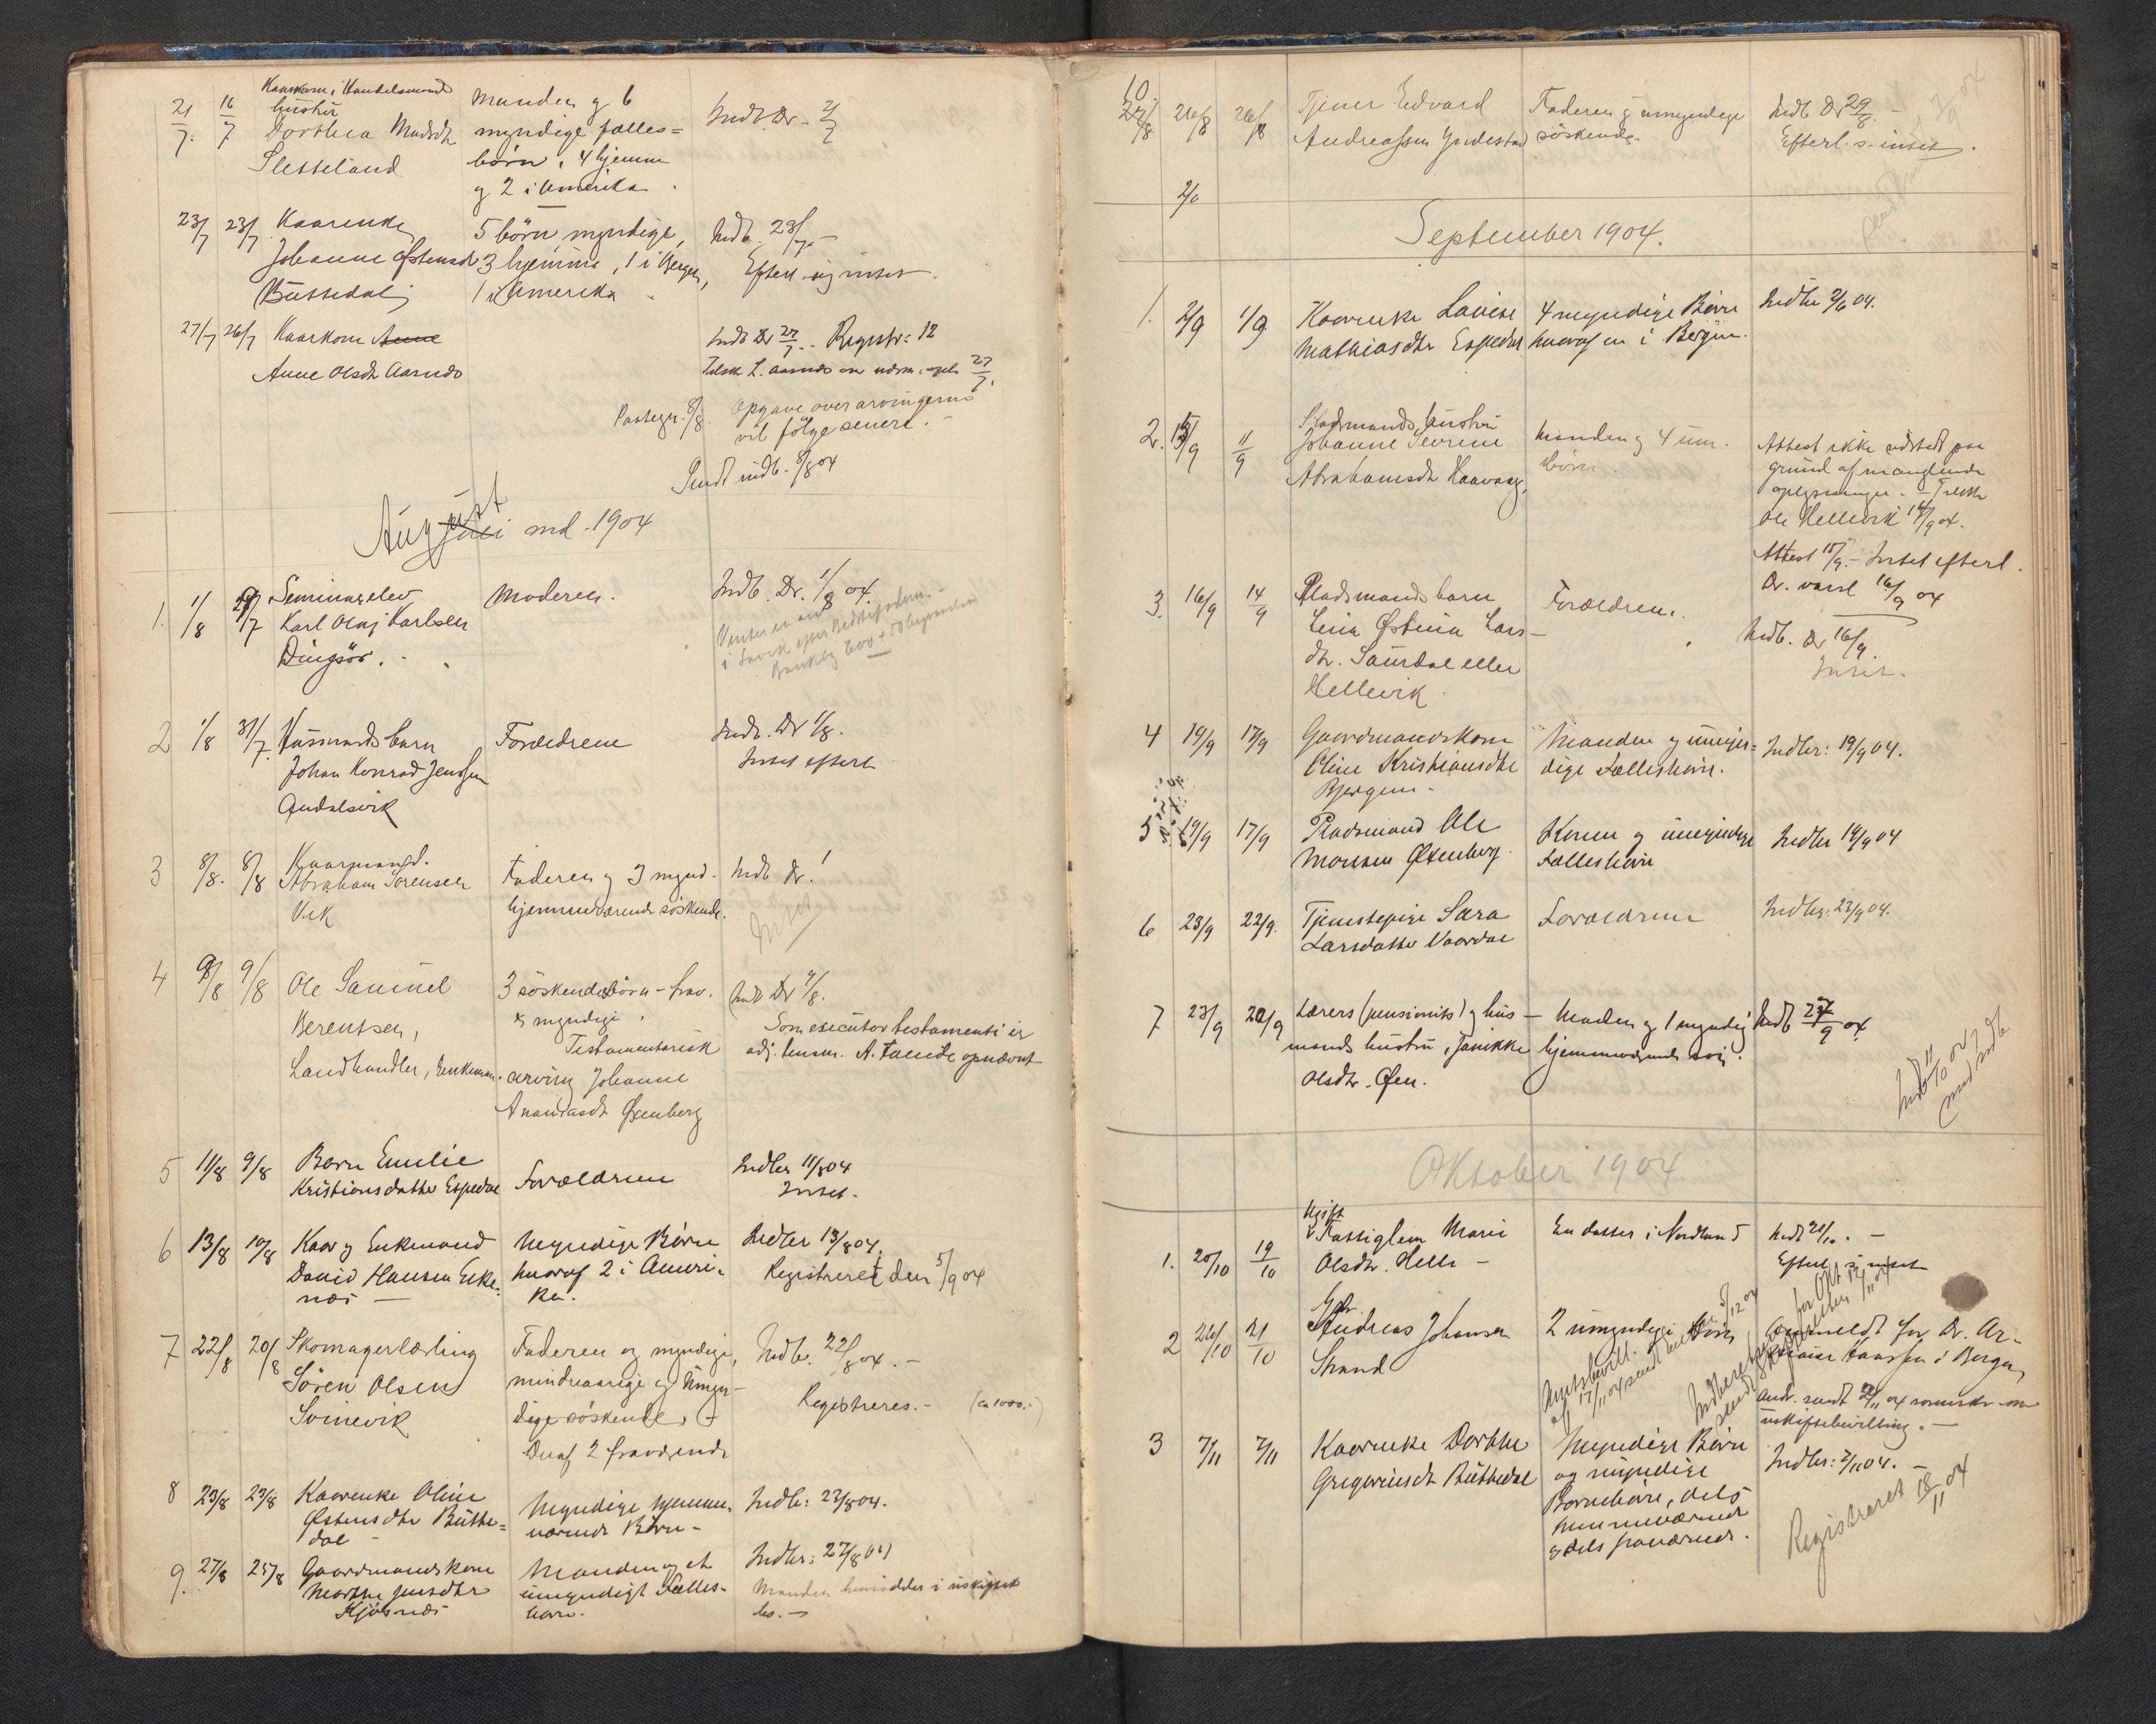 21/7. 16/7 Kaarkone, Handelsmands
hustru
Dorthea Madsdtr
Sletteland
Manden og 6
myndige fælles=
børn, 4 hjemme
og 2 i Amerika.
Indb. Dr. 21/7
23/7 23/7 Kaarenke
Johanne Østensdtr
Buttedal
5 børn, myndige,
3 hjemme, 1 i Bergen,
1 i Amerika.
Indb. 23/7. -
Efterl. sig intet.
27/7 26/7 Kaarkone Anne
Anne Olsdtr Aarnes
Indb Dr 27/7. Registr. 12
27/7.
Paategn. 8/8. Opgave over arvingerne
vil følge senere. -
Sendt indb. 8/8 04
August Juli md. 1904
1. 1/8 29/7 Seminarelev
Karl Olaj Karlsen
Dingsør.
Moderen.
Indb. Dr. 1/8 04.
2 1/8 31/7. Husmandsbarn
Johan Konrad Jenssen
Andalsvik
Forældrene
Indb. Dr 1/8.
Intet efterl.
3 8/8. 8/8 Kaarmand.
Abraham Sørensen
Vik
Faderen og 3 mynd.
hjemmeværende søskende.
Indb Dr.
Intet
4 9/8 9/8 Ole Samuel
Berentsen,
Landhandler, Enkeman.
3 søskendebørn - frav.
& myndige.
Testamentarisk
arving Johanne
Ananiasdtr Øxenberg
Indb Dr 9/8.
Som executor testamenti er
adj. lensm. A. opnævnt
5 11/8 9/8 Barn Emilie
Kristiansdatter Espedal
Forældrene
Indber 11/8 04
Intet.
6 13/8 10/8 Kaar og Enkemand
David Hansen Eike-
næs -
Myndige Børn
hvoraf 2 i Ameri-
ka.
Indber 13/8 04.
Registreret den 5/9 04
7 22/8 20/8 Skomagerlærling
Søren Olsen
Svinevik
Faderen og myndige,
mindreaarige og umyn-
dige søskende,
Deraf 2 fraværende
Indb. 22/8 04. -
Registreres. - (ca 1000.-)
8 23/8 23/8 Kaarenke Oline
Østensdtr Butte=
dal -
Myndige hjemme-
værende Børn -
Indb: 23/8 04.
9. 27/8 25/8 Gaardmandskone
Marthe Jensdtr
Kjøsnæs
Manden og et
umyndigt Fælles-
barn.
Indber: 27/8 04
Manden hensidder i uskiftet
bo. -
10.
27/8 26/8 26/8 Tjener Edvard
Andreassen Yndestad
Faderen og umyndige
søskende.
Indb Dr 29/8. -
Efterl. s. intet.
2/8
September 1904.
1. 2/9 1/9 Kaarenke Lovise
Mathiasdtr Espedal
4 myndige Børn
hvoraf en i Bergen.
Indbr 2/9 04.
2. 13/9 11/9 Pladsmands hustru
Johanne Severine
Abrahamsdtr Haavang,
Manden og 4 um.
børn.
Attest ikke udstedt paa
grund af manglende
oplysninger. -
Ole Hellevik 14/9 04.
Attest 15/9. - Intet efterl.
Dr. varsl 16/9 04
3. 16/9 14/9 Pladsmandsbarn
Lina Østina Lars-
dtr. Saurdal eller
Hellevik.
Forældrene.
Indb. Dr 16/9.
Intet.
4 19/9 17/9 Gaardmandskone
Oline Kristiansdtr
Bjergum -
Manden og umyn=
dige Fællesbørn.
Indber: 19/9 04.
5 19/9 17/9 Pladsmand Ole
Monsen Øxenberg.
Konen og umyndige
Fællesbørn
Indber 19/9 04
6 23/9 22/9. Tjenestepige Sara
Larsdatter Vaardal
Forældrene
Indber: 23/9 04.
7 23/9 20/9 Lærers (pensionists) og hus-
mands hustru, Janikke
Olsdtr. Øen.
Manden og 1 myndig
hjemmeværende søn.
Indb 23/9 04.
Oktober 1904.
1. 20/10 19/10 Ugift
Fattiglem Marie
Olsdtr. Helle -
En datter i Nordland
Indb 21/10. -
Efterl. s. intet
2 26/10 21/10 Gbr.
Andreas Johansen
Strand
2 umyndige børn
Anmeldt for Dr.
i Bergen
uskiftebevilling. -
3 7/11 7/11 Kaarenke Dorthe
Gregoriusdtr Buttedal
Myndige Børn
og myndige
Børnebørn, dels
hjemmeværende
og dels fraværende.
Indber: 7/11 04. -
Registreret 18/11 04